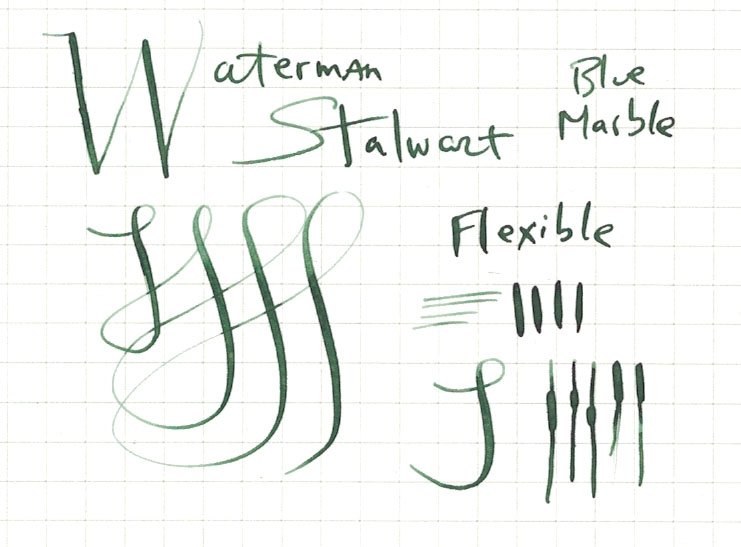 Waterman
Stalwart
Blue
Marble
Flexible